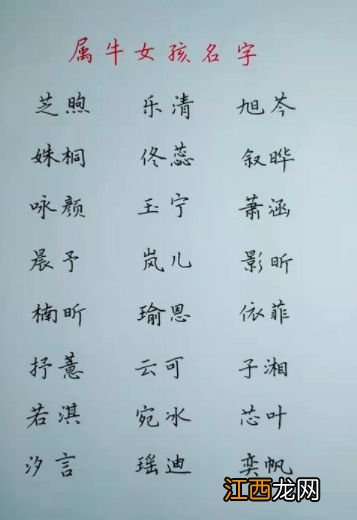 属牛女孩名字
芝煦 乐清 旭岑
姝桐 佟蕊 叙晔
咏颜 玉宁 萧涵
晨予 岚儿 影昕
楠昕 瑜恩 依菲
抒薏 云可 子湘
若淇 宛冰 芯叶
汐言 瑶迪 奕帆
江西龙网